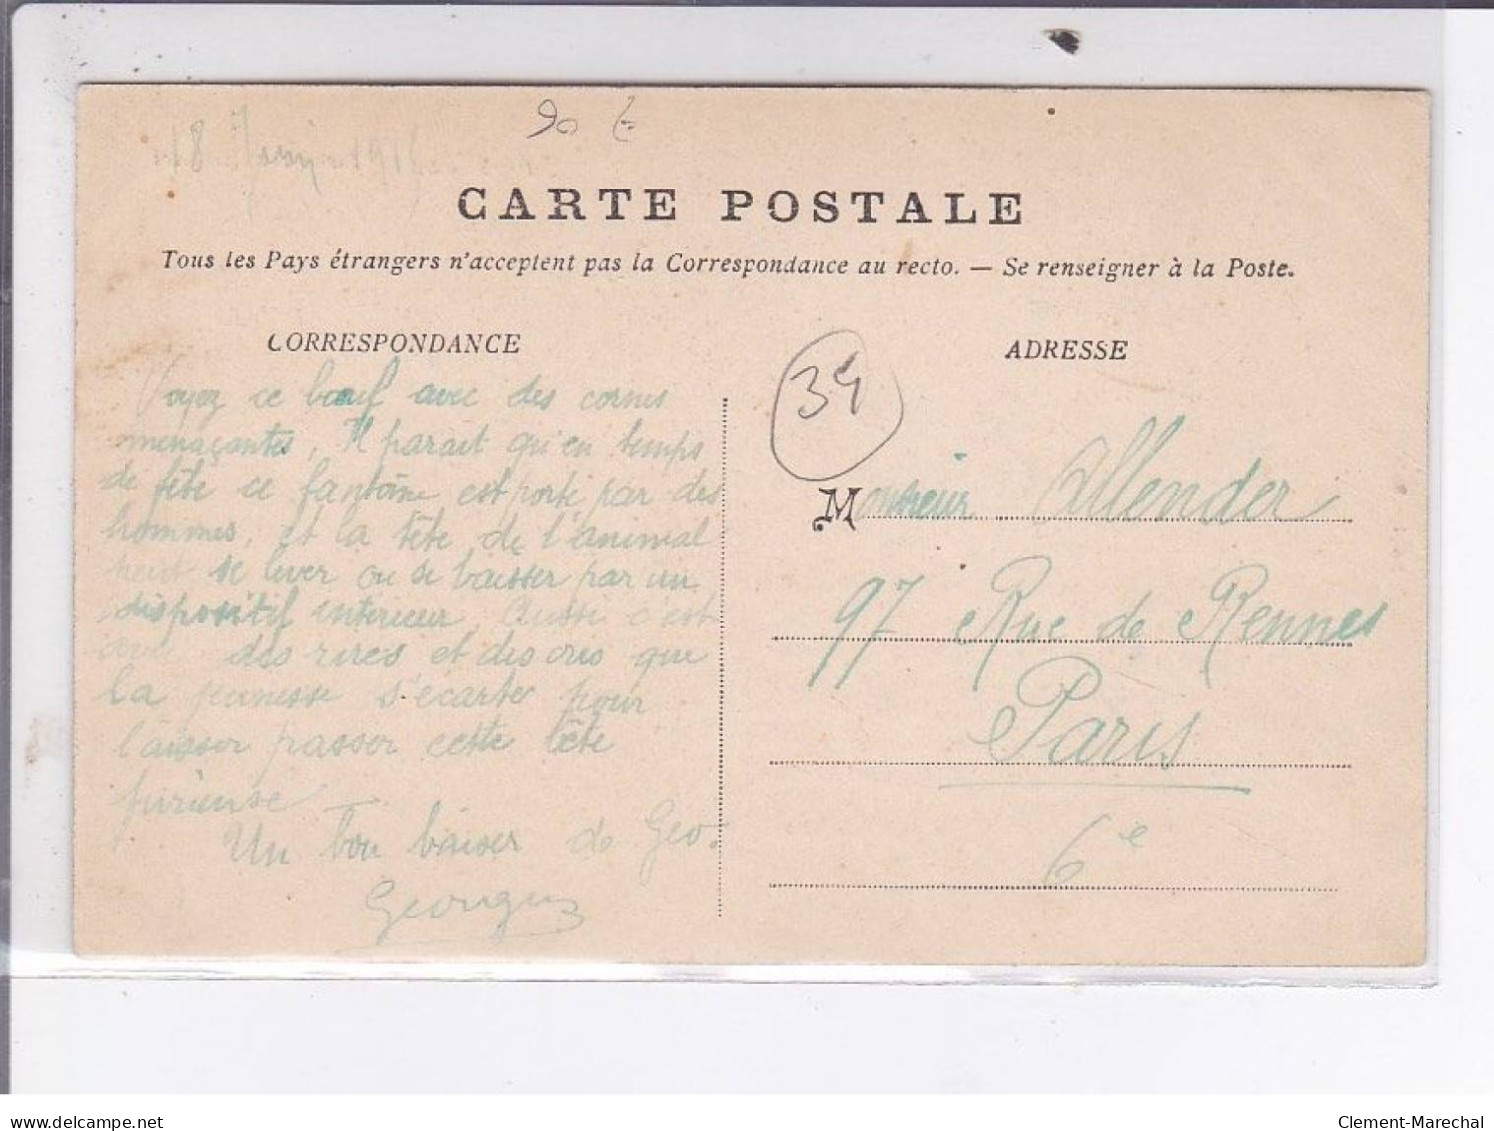 90 €
18 1915
CARTE POSTALE
Tous les Pays étrangers n'acceptent pas la Correspondance au recto. — Se renseigner à la Poste.
CORRESPONDANCE
Voyez ce bœuf avec des cornes
menaçantes, Il parait qu'en temps
de fête ce fantôme est porté par des
hommes, et la tête de l'animal
peut se lever ou se baisser par un
dispositif interieur. Aussi c'est
avec des rires et des cris que
la jeunesse s'écarte pour
laisser passer cette bête
furieuse
Un bon baiser de Geo.
Georges
34
ADRESSE
Monsieur Allender
97 Rue de Rennes
Paris
6e
delcampe.net
Clement-Marechal